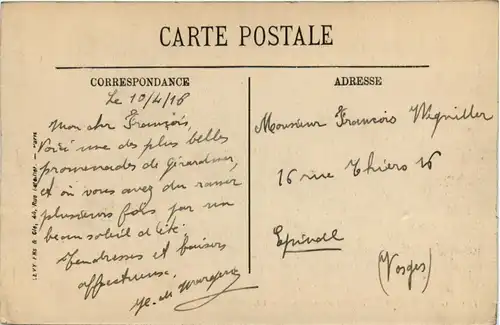 CARTE POSTALE
CORRESPONDANCE
Le 10/4/18
Mon cher François,
Voici une des plus belles
promenades de Gérardmer,
et où vous avez du ramer
plusieurs fois par un
beau soleil d'été.
Tendresses et baisers
affectueuse.
ADRESSE
Monsieur François
16 rue Thiers 16
Epinal
(Vosges)